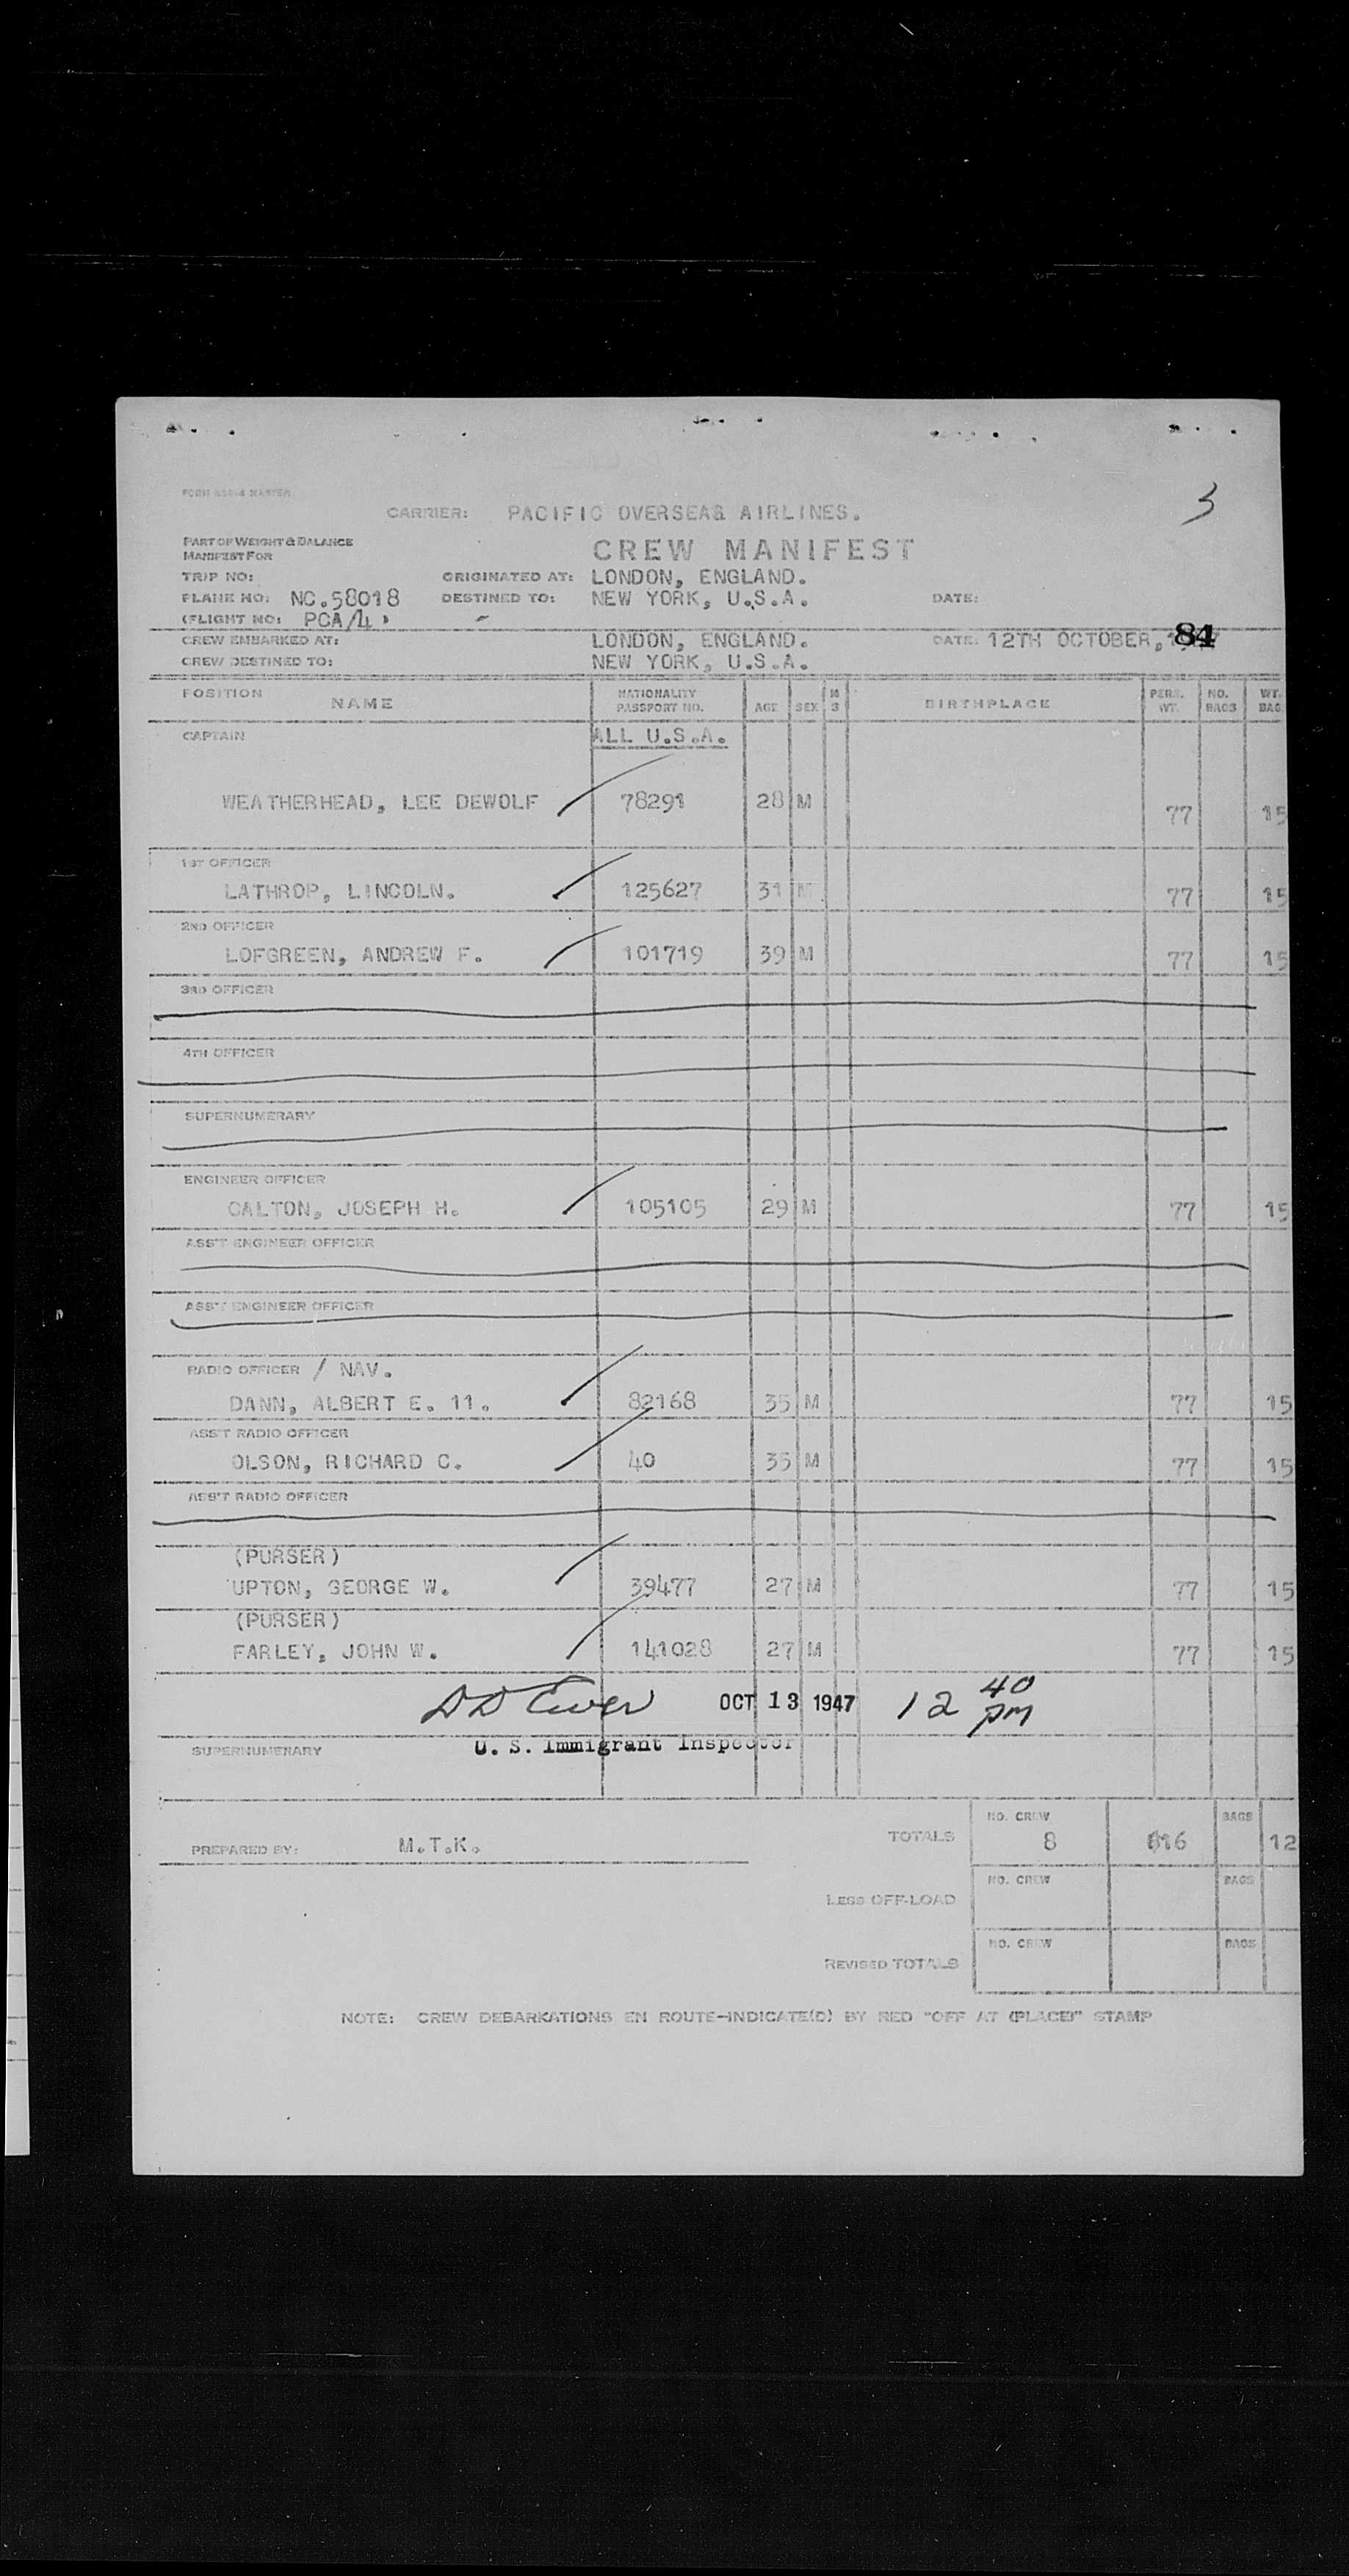 3
CARRIER: PACIFIC OVERSEAS AIRLINES.
PART OF WEIGHT & BALANCE
MANIFEST FOR
CREW MANIFEST
TRIP NO: ORIGINATED AT: LONDON, ENGLAND.
PLANE NO: NC.58018 DESTINED TO: NEW YORK, U.S.A. DATE:
(FLIGHT NO: PCA/4)
CREW EMBARKED AT: LONDON, ENGLAND. DATE: 12TH OCTOBER, 84
CREW DESTINED TO: NEW YORK, U.S.A.
POSITION NAME NATIONALITY PASSPORT NO. AGE SEX M S BIRTHPLACE PERS. WT. NO. BAGS WT. BAG
CAPTAIN ALL U.S.A.
WEATHERHEAD, LEE DEWOLF 78291 28 M 77 15
1ST OFFICER
LATHROP, LINCOLN. 125627 31 M 77 15
2ND OFFICER
LOFGREEN, ANDREW F. 101719 39 M 77 15
3RD OFFICER
4TH OFFICER
SUPERNUMERARY
ENGINEER OFFICER
CALTON, JOSEPH H. 105105 29 M 77 15
ASS'T ENGINEER OFFICER
ASS'T ENGINEER OFFICER
RADIO OFFICER / NAV.
DANN, ALBERT E. 11. 82168 35 M 77 15
ASS'T RADIO OFFICER
OLSON, RICHARD C. 40 35 M 77 15
ASS'T RADIO OFFICER
(PURSER)
UPTON, GEORGE W. 39477 27 M 77 15
(PURSER)
FARLEY, JOHN W. 141028 27 M 77 15
OCT 13 1947 12 40 pm
U. S. Immigrant Inspector
SUPERNUMERARY
TOTALS NO. CREW 8 616 BAGS 12
PREPARED BY: M.T.K.
LESS OFF-LOAD NO. CREW BAGS
REVISED TOTALS NO. CREW BAGS
NOTE: CREW DEBARKATIONS EN ROUTE-INDICATE(D) BY RED "OFF AT (PLACE)" STAMP